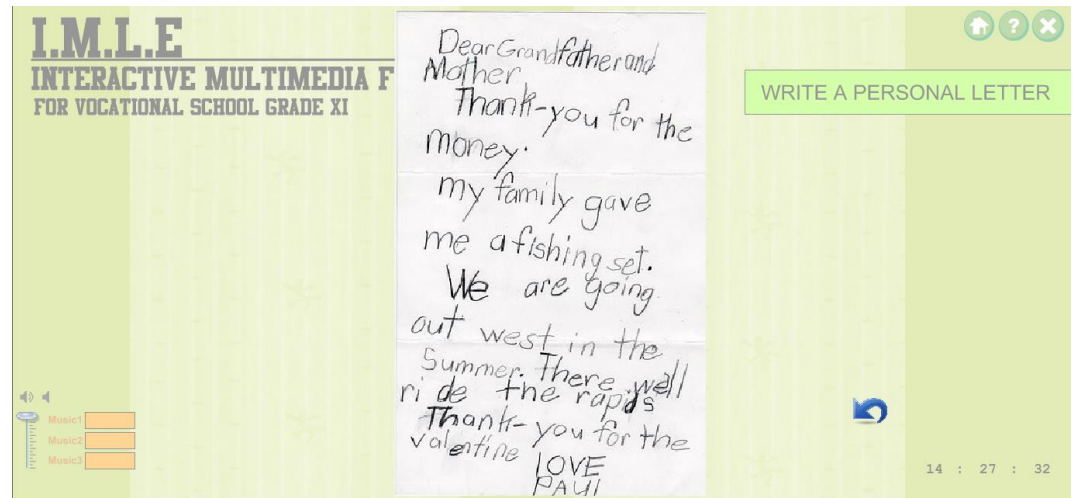 I.M.L.E
INTERACTIVE MULTIMEDIA F
FOR VOCATIONAL SCHOOL GRADE XI
WRITE A PERSONAL LETTER
Dear Grandfather and
Mother
Thank-you for the
money.
my family gave
me a fishing set.
We are going
out west in the
Summer. There well
ride the rapids
Thank-you for the
valentine
LOVE
PAUl
Music1
Music2
Music3
14 : 27 : 32